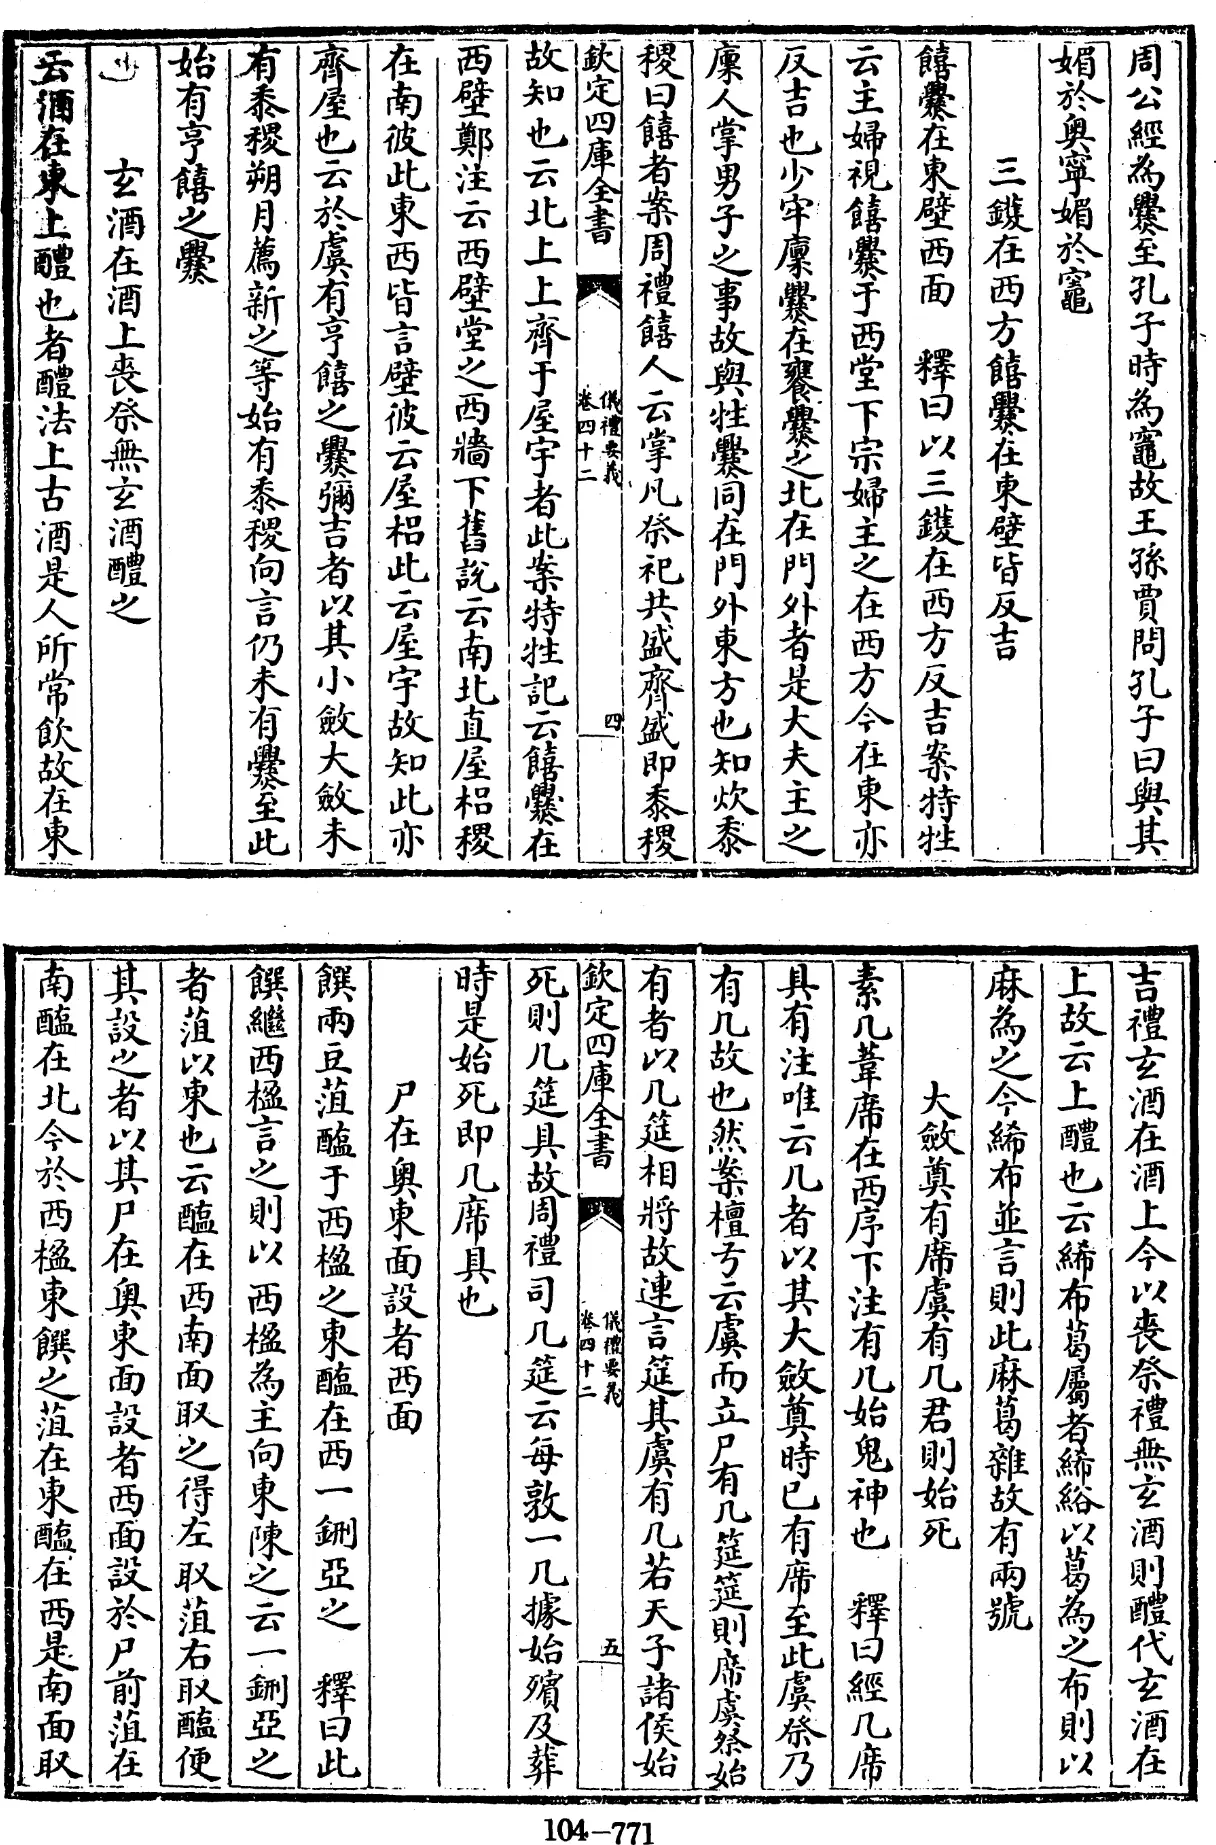 周公經為爨至孔子時為竈故王孫賈問孔子曰與其
媚於奥寜媚於竈
三鑊在西方饎爨在東壁皆反吉
饎爨在東壁西面　釋曰以三鑊在西方反吉案特牲
云主婦視饎爨于西堂下宗婦主之在西方今在東亦
反吉也少牢廩爨在饔爨之北在門外者是大夫主之
廩人掌男子之事故與牲爨同在門外東方也知炊黍
稷曰饎者案周禮饎人云掌凡祭祀共盛齊盛即黍稷
欽定四庫全書
儀禮要義
卷四十二
四
故知也云北上上齊于屋宇者此案特牲記云饎爨在
西壁鄭注云西壁堂之西牆下舊說云南北直屋梠稷
在南彼此東西皆言壁彼云屋梠此云屋宇故知此亦
齊屋也云於虞有亨饎之爨彌吉者以其小斂大斂未
有黍稷朔月薦新之等始有黍稷向言仍未有爨至此
始有亨饎之爨
玄酒在酒上喪祭無玄酒醴之
云酒在東上醴也者醴法上古酒是人所常飲故在東
吉禮玄酒在酒上今以喪祭禮無玄酒則醴代玄酒在
上故云上醴也云絺布葛屬者絺綌以葛為之布則以
麻為之今絺布並言則此麻葛雜故有兩號
大斂奠有席虞有几君則始死
素几葦席在西序下注有几始鬼神也　釋曰經几席
具有注唯云几者以其大斂奠時已有席至此虞祭乃
有几故也然案檀弓云虞而立尸有几筵筵則席虞祭始
有者以几筵相將故連言筵其虞有几若天子諸侯始
欽定四庫全書
儀禮要義
卷四十二
五
死則几筵具故周禮司几筵云每敦一几據始殯及葬
時是始死即几席具也
尸在奥東面設者西面
饌兩豆菹醢于西楹之東醢在西一鉶亞之　釋曰此
饌繼西楹言之則以西楹為主向東陳之云一鉶亞之
者菹以東也云醢在西南面取之得左取菹右取醢便
其設之者以其尸在奥東面設者西面設於尸前菹在
南醢在北今於西楹東饌之菹在東醢在西是南面取
104-771